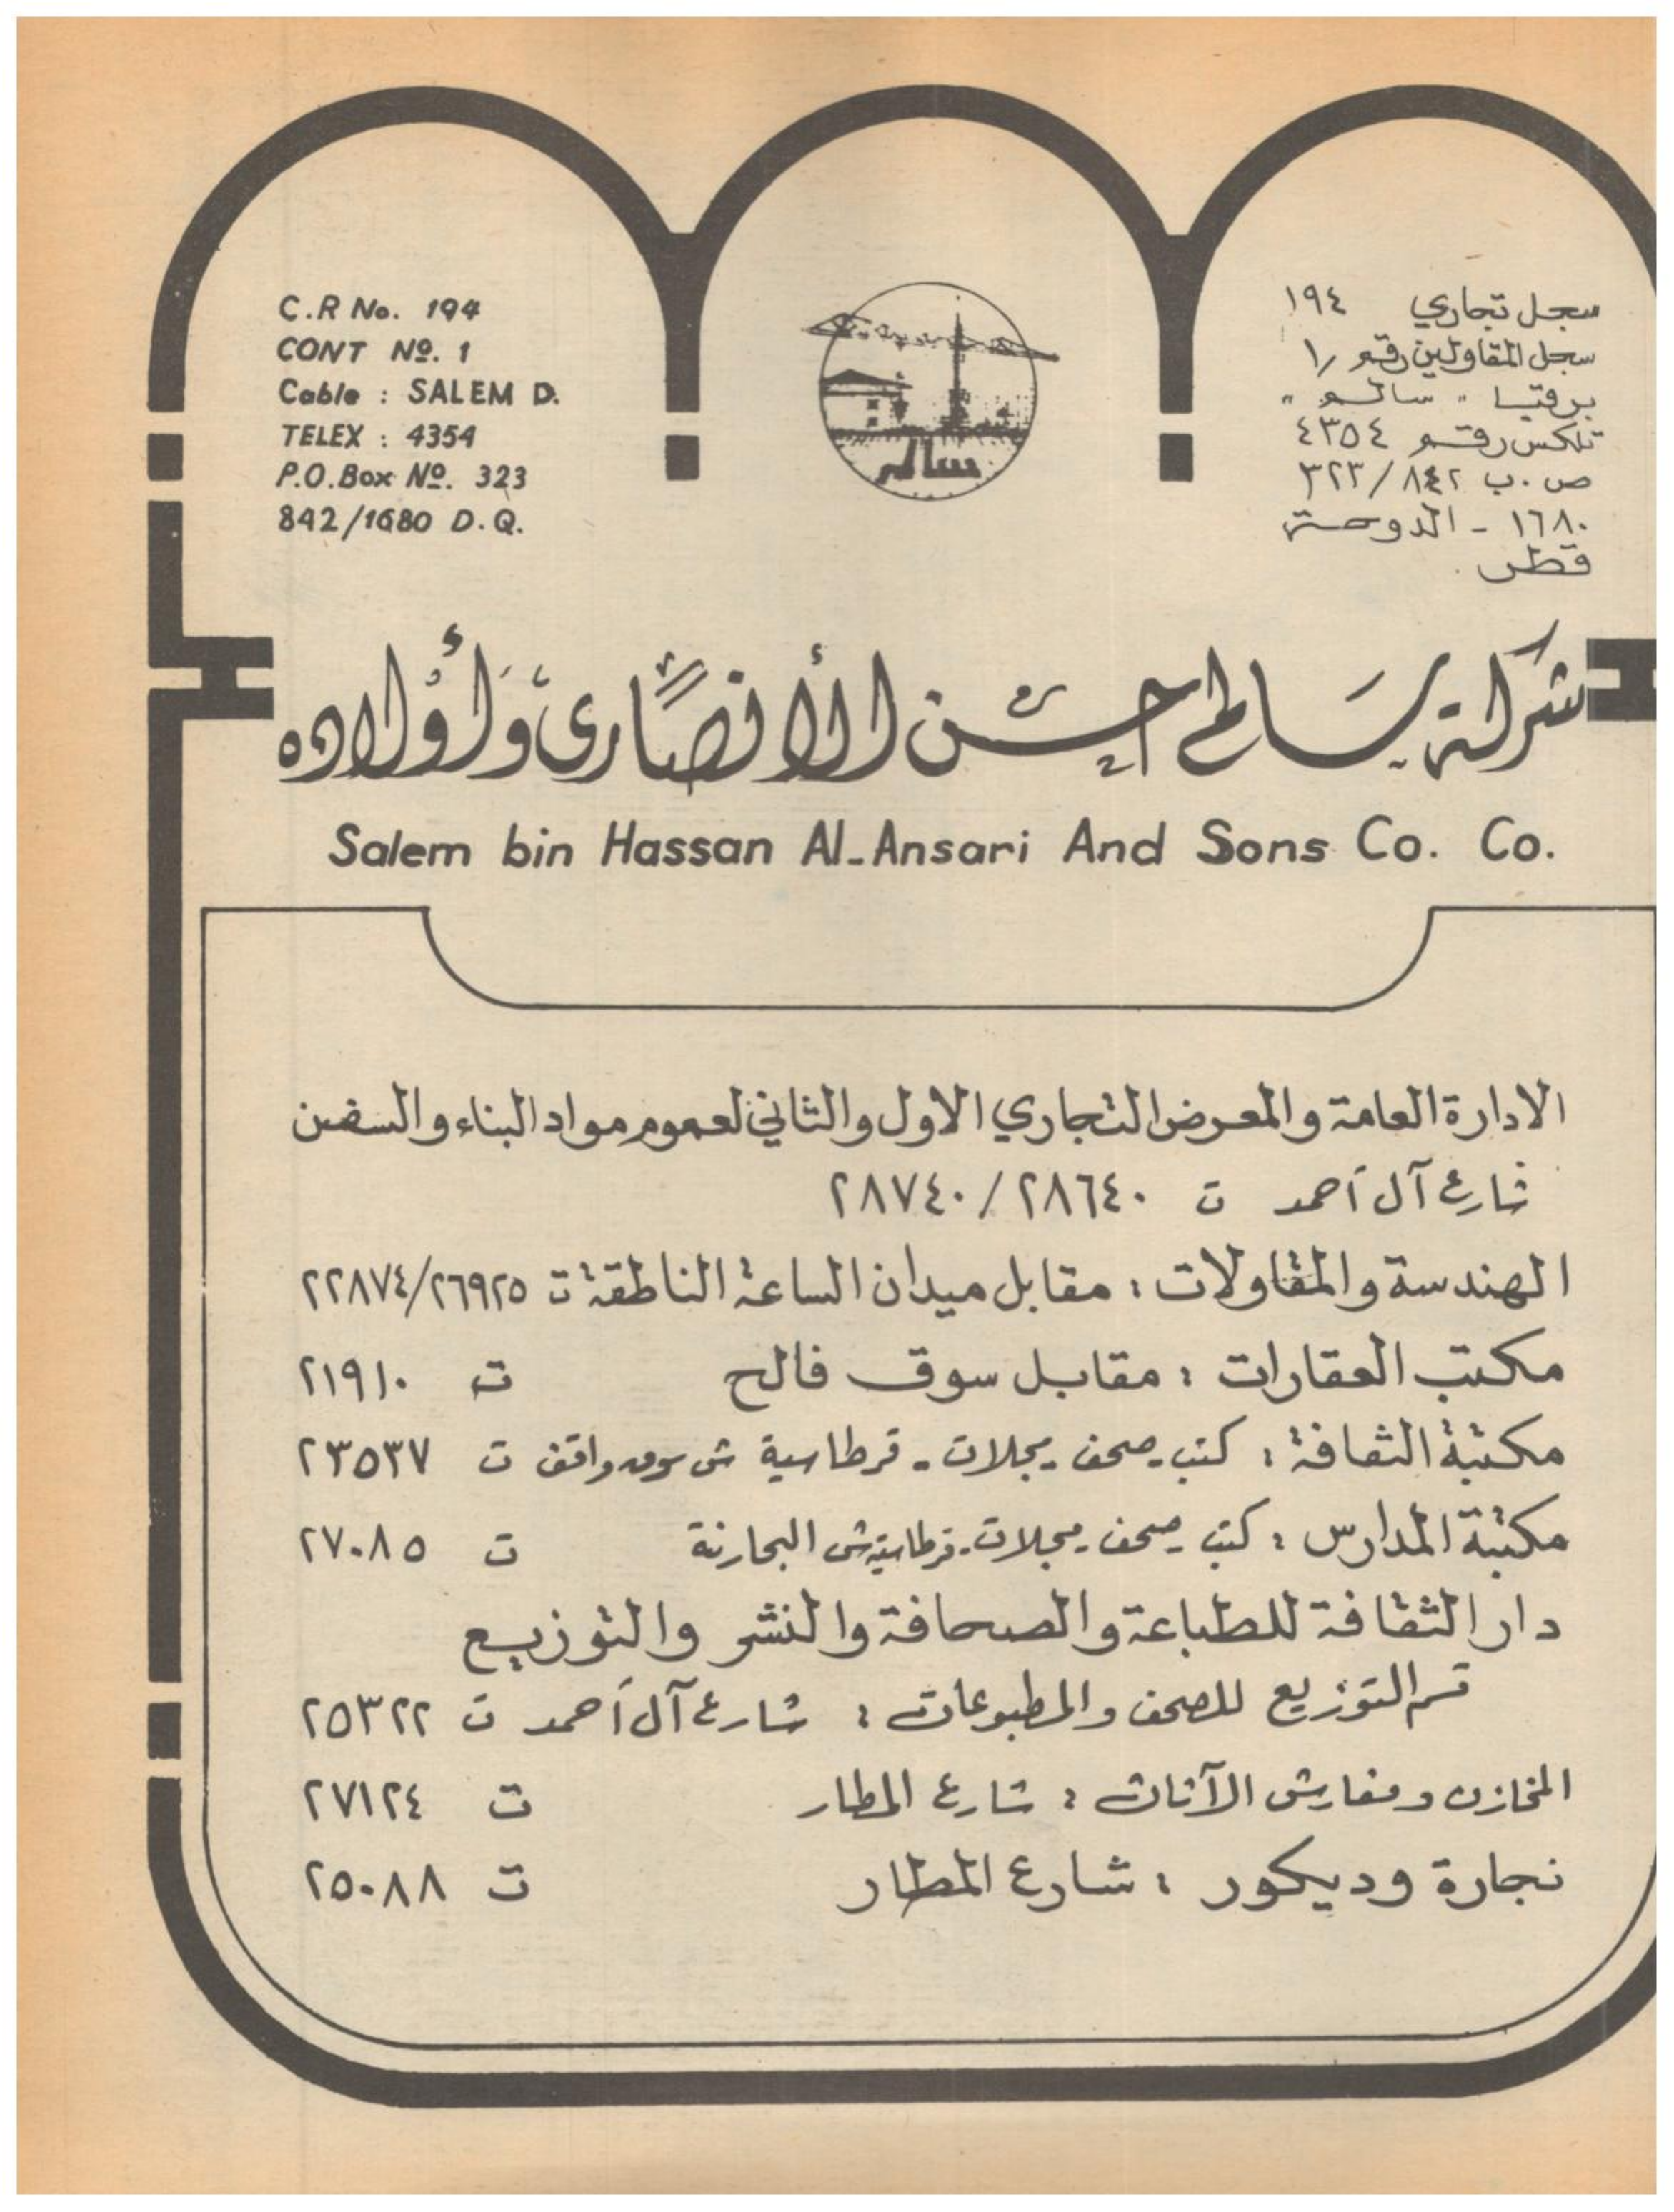 C.R No. 194
CONT Nº. 1
Cable : SALEM D.
TELEX : 4354
P.O.Box Nº. 323
842/1680 D.Q.
سالم
سجل تجاري ١٩٤
سجل المقاولين رقم ١/
برقيا " سالم "
تلكس رقم ٤٣٥٤
ص.ب ٣٢٣/٨٤٢
١٦٨٠ - الدوحة
قطر
شركة سَالم حسن الأنصَاري وَأولاده
Salem bin Hassan Al-Ansari And Sons Co. Co.
الادارة العامة والمعرض التجاري الاول والثاني لعموم مواد البناء والسفن
شارع آل أحمد ت ٢٨٦٤٠ / ٢٨٧٤٠
الهندسة والمقاولات : مقابل ميدان الساعة الناطقة ت ٢٢٨٧٤/٢٦٩٢٥
مكتب العقارات : مقابل سوق فالح ت ٢١٩١٠
مكتبة الثقافة : كتب - صحف - مجلات - قرطاسية ش سوق واقف ت ٢٣٥٣٧
مكتبة المدارس : كتب - صحف - مجلات - قرطاسية ش البحارنة ت ٢٧٠٨٥
دار الثقافة للطباعة والصحافة والنشر والتوزيع
قسم التوزيع للصحف والمطبوعات : شارع آل أحمد ت ٢٥٣٢٢
المخازن ومفارش الآثاث : شارع المطار ت ٢٧١٢٤
نجارة وديكور : شارع المطار ت ٢٥٠٨٨